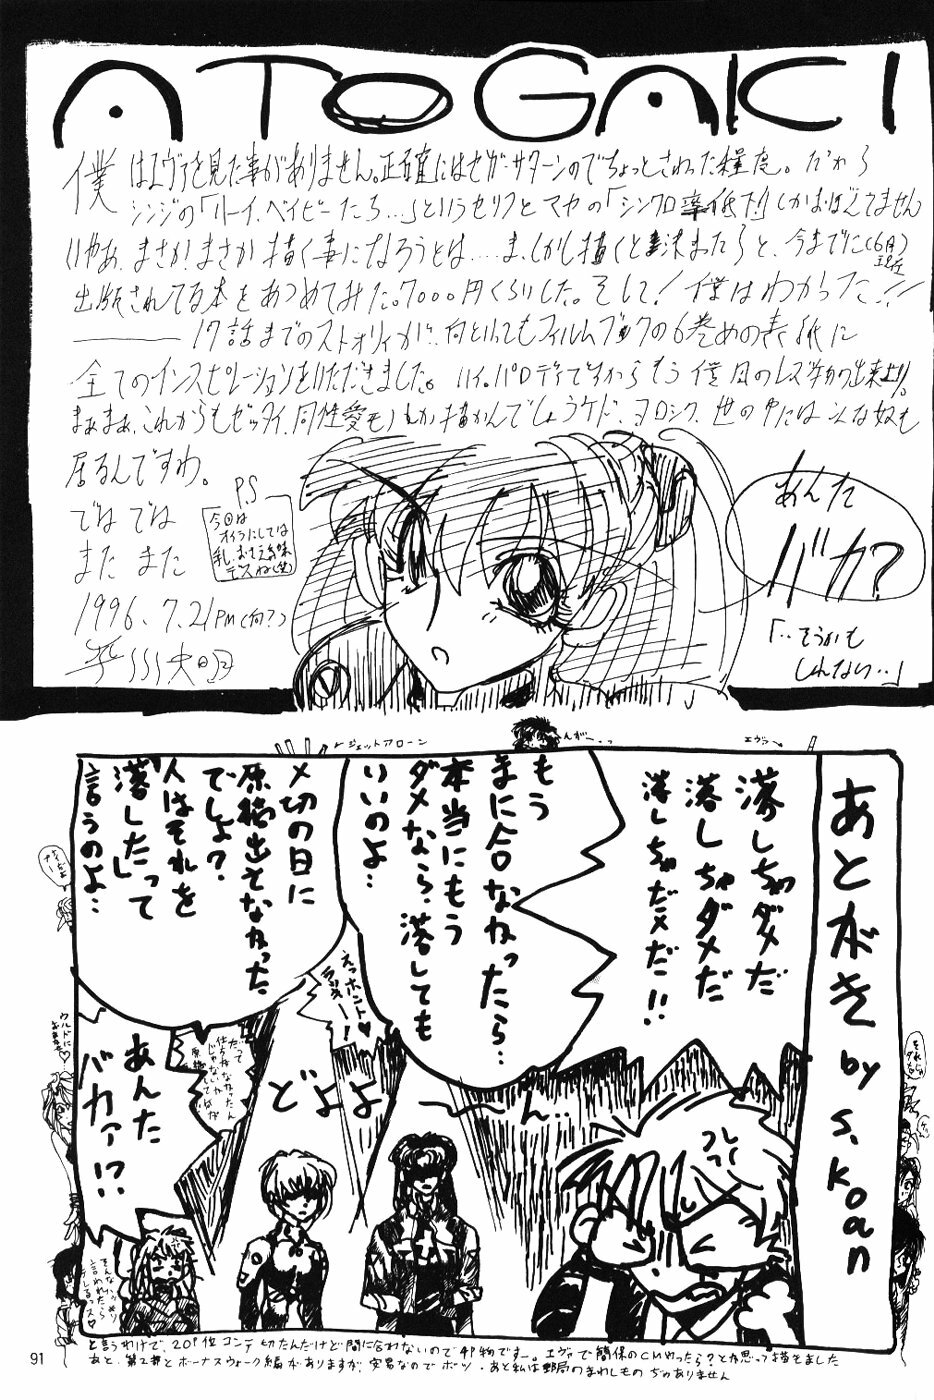 ATOGAKI
僕はエヴァを見た事がありません。正確にはセガ・サターンのでちょっとさわった程度。だから
シンジの「ハーイ、ベイビーたち…」というセリフとマヤの「シンクロ率低下!」しかおぼえてません
いやあ、まさか、まさか描く事になろうとは……ま、しかし描くと決まったらと、今までに(6月現在)
出版されてる本をあつめてみた。7000円くらいした。そして!僕はわかった!!
17話までのストォリィが!、何といってもフィルムブックの6巻めの表紙に
全てのインスピレーションをいただきました。ハイ。パロディですからもう僕風のレズものの出来上り。
まぁまぁ、これからもゼッタイ、同性愛モノしか描かんでしょうケド、ヨロシク、世の中にはこんな奴も
居るんですわ。
では では
また また
1996.7.21PM(何?)
P.S
今回は
オイラにしては
乳
デスね(笑)
あんた
バカ?
「‥そうかも
しれない‥」
ジェットアローン
んがー‥っ
エヴァ
あとがき by S.Koan
落しちゃダメだ
落しちゃダメだ
落しちゃだメだ!!
もう
まに合わなかったら…
本当にもう
ダメなら、落しても
いいのよ…
〆切の日に
原稿出せなかった
でしょ?
人はそれを
「落した」って
言うのよ…
えっホント♥
ラッキー!
だって
仕方なかったん
じゃないって
あんた
バカァ!?
どよよーん‥
と言うわけで、20P位コンテ切たんだけど間に合わないので4P物ですー。エヴァで簡保のCMやったら?とか思って描きました
あと、第2部とボーナスウォーク編がありますが、安易なのでボツ・あと私は郵局のまわしもの ぢゃありません
91